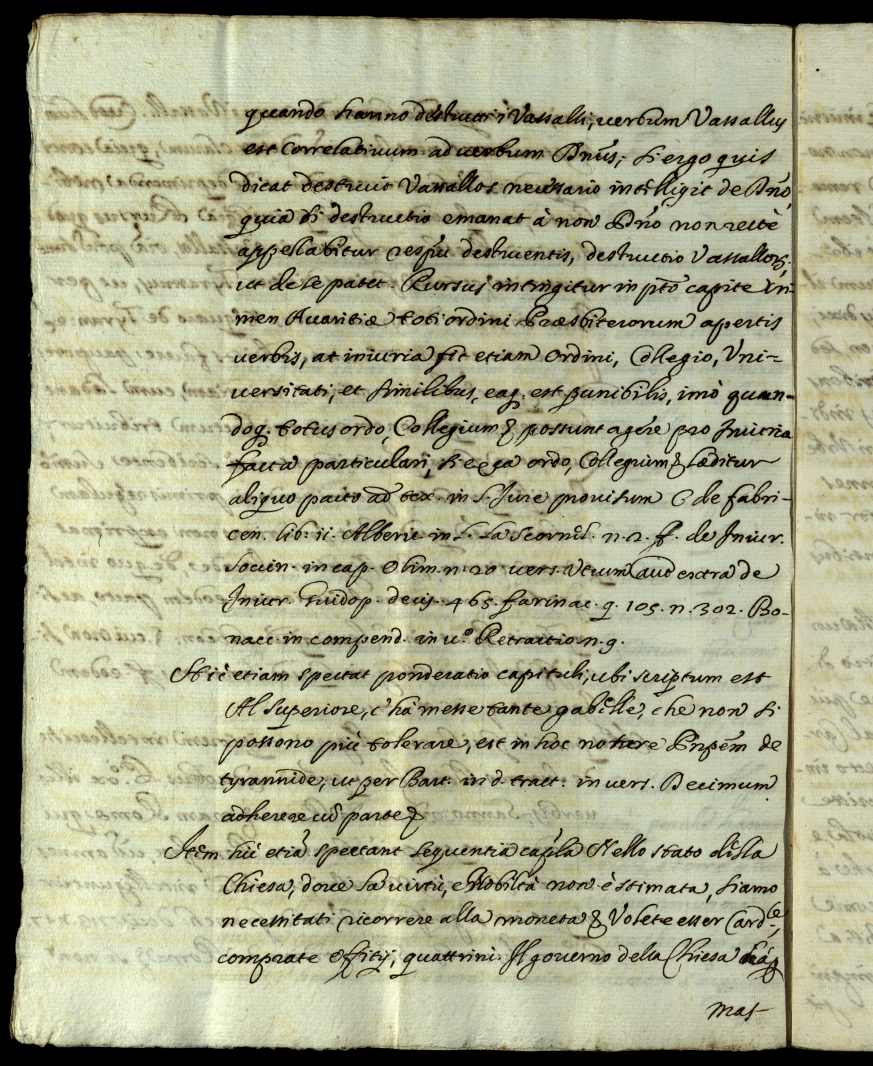 quando hanno destrutti i Vassalli, uerbum Vassallus
est Correlatiuum ad uerbum Dn̄us; si ergo quis
dicat destruit Vassallos necessario intelligit de Dn̄o,
quia si destructio emanat à non Dn̄o non rectè
appellabitur respũ destruentis, destructio Vassallorꝫ,
ut de se patet. Rursus intingitur in pt̃o capite Cri-
men Auaritiæ toti ordini Præsbiterorum apertis
uerbis, at iniuria fit etiam Ordini, Collegio, Vni=
uersitati, et similibus, eaq. est punibilis, imò quan-
doq. totus ordo, Collegium & possunt agere pro Iniuria
facta particulari, si ex ea ordo, Collegium & læditur
aliquo pacto ad tex. in l. Iure prouisum C de fabri-
cen. lib. ii. Alberic. in l. La n. 2. ff. de Iniur.
Socin. in cap. Olim. n. 20 uers. Vtrum aut extra de
Iniur. Guidop. decis. 465. farinac. q. 105. n. 302. Bo-
nacc. in compend. in u.º Retractio n. 9.
Hìc etiam spectat ponderatio capituli, ubi scriptum est
Al Superiore, c'hà messe tante gabelle, che non si
possono più tolerare, est in hoc notare Pn̄pẽm de
tyrannide, ut per Bart. in d. tract. in uers. Decimum
adherere uñ parte &
Item hic etiã spectant sequentia cap̃la Nello stato della
Chiesa, doue la uirtù, e Nobiltà non è stimata, siamo
necessitati ricorrere alla moneta & Volete esser Card.le,
comprate offitij, quattrini. Il governo della Chiesa hà p
mas-